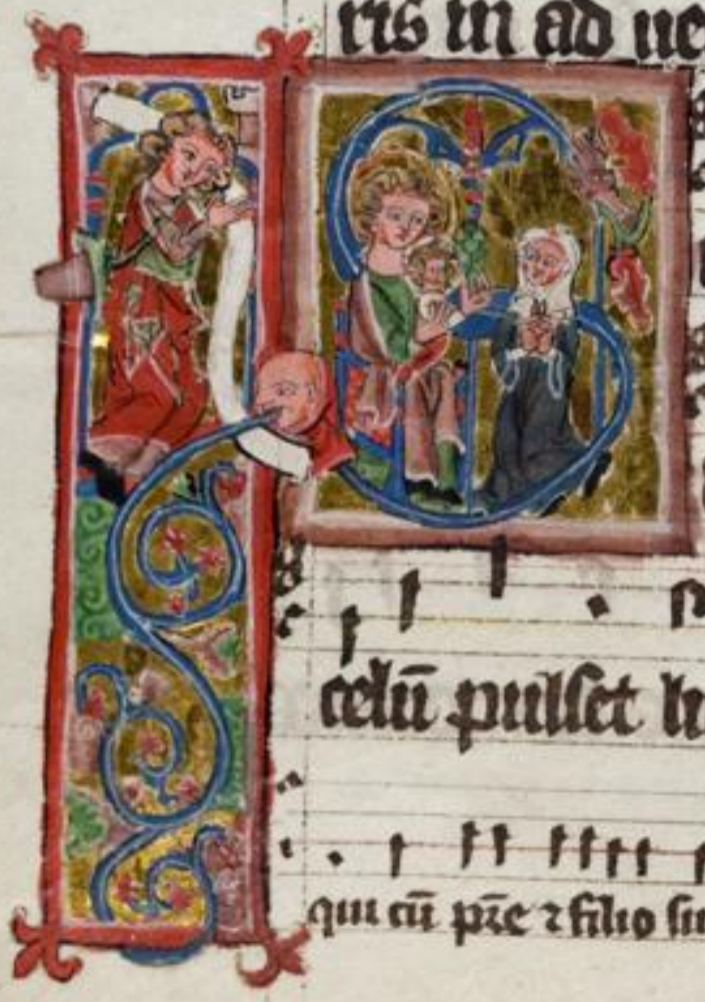 ris in ad ue
celū pulset h
qui cū pr̄e ⁊ filio si